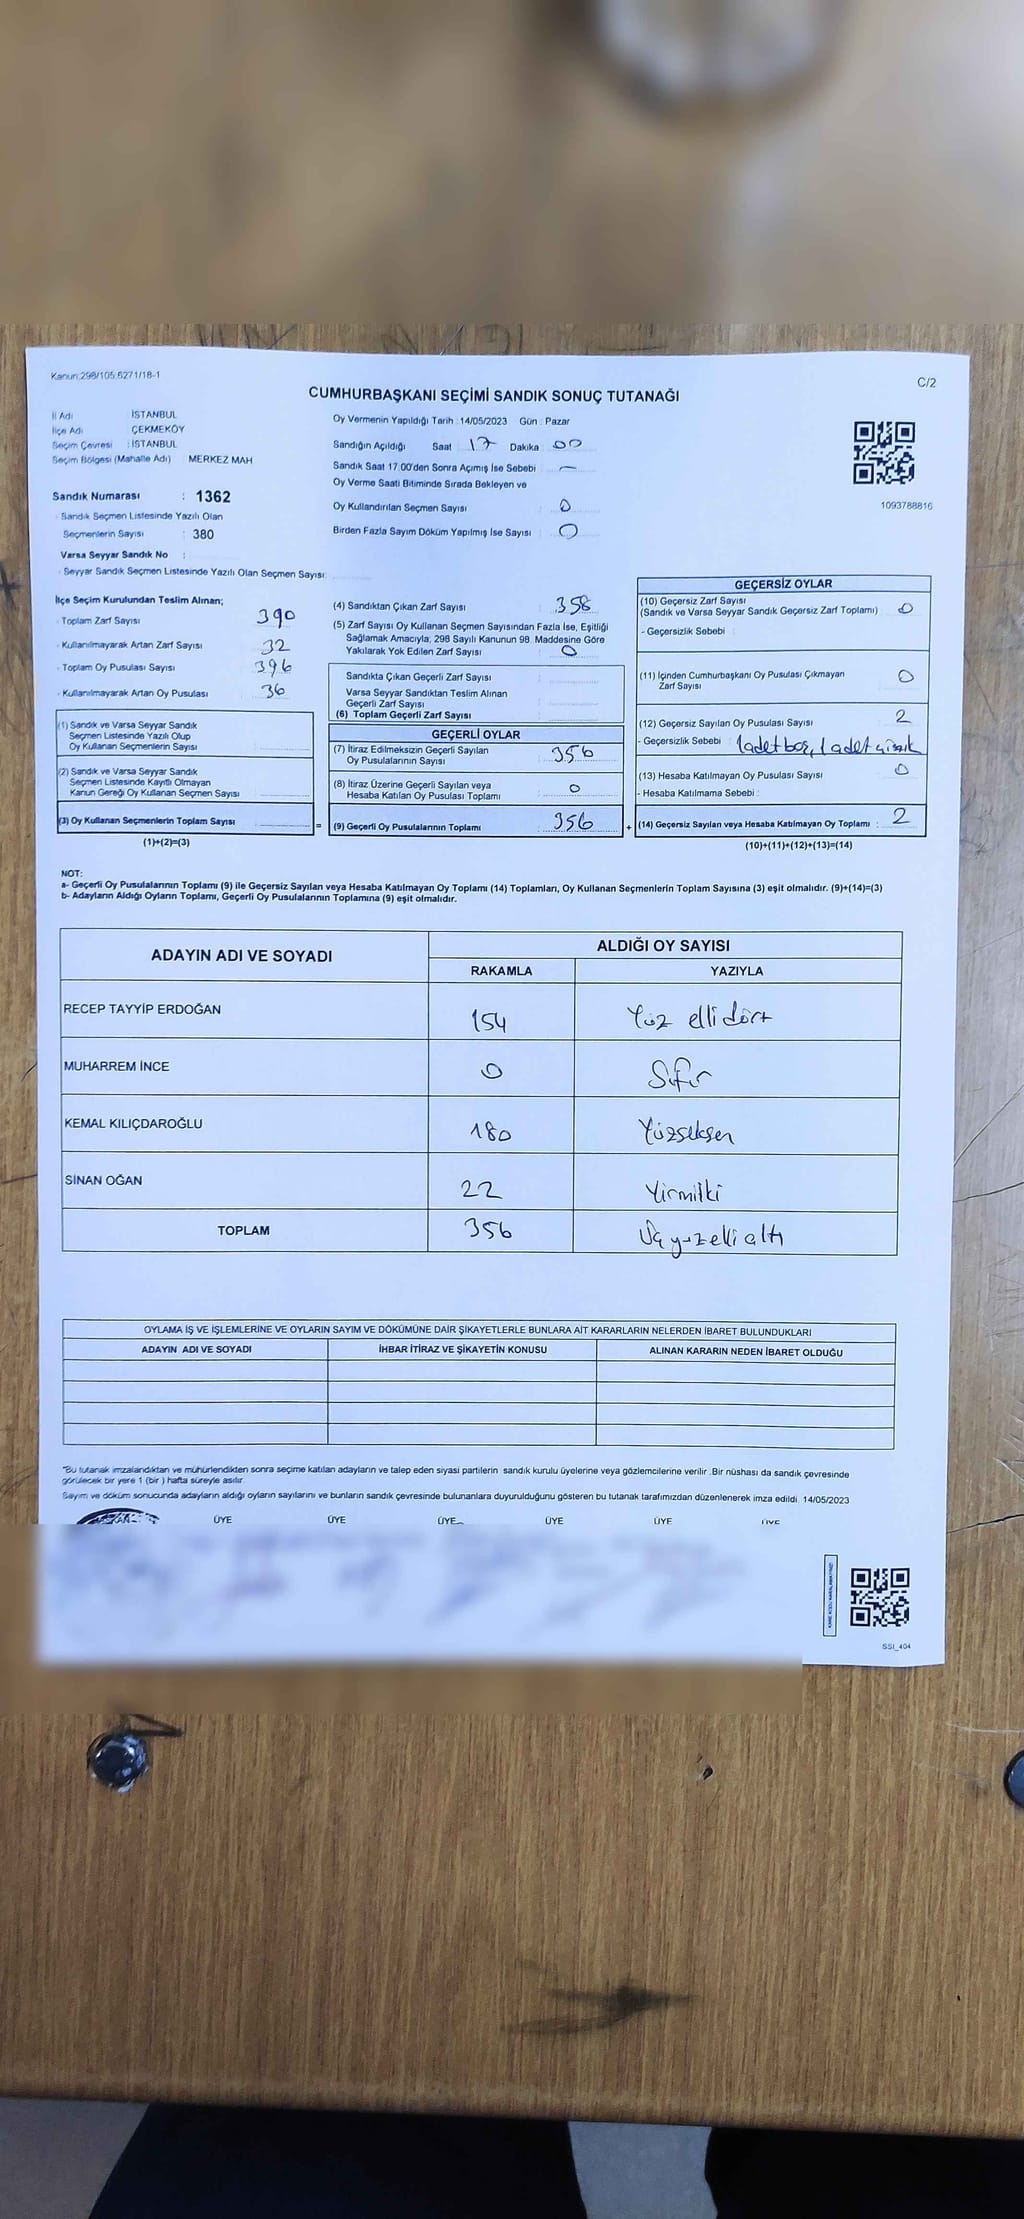 Kanun;298/105;6271/18-1
C/2
CUMHURBAŞKANI SEÇİMİ SANDIK SONUÇ TUTANAĞI
İl Adı İSTANBUL
İlçe Adı ÇEKMEKÖY
Seçim Çevresi : İSTANBUL
Seçim Bölgesi (Mahalle Adı) MERKEZ MAH
Sandık Numarası : 1362
- Sandık Seçmen Listesinde Yazılı Olan
Seçmenlerin Sayısı : 380
Varsa Seyyar Sandık No :
- Seyyar Sandık Seçmen Listesinde Yazılı Olan Seçmen Sayısı:
Oy Vermenin Yapıldığı Tarih : 14/05/2023 Gün : Pazar
Sandığın Açıldığı Saat 17 Dakika 00
Sandık Saat 17:00'den Sonra Açımış İse Sebebi : —
Oy Verme Saati Bitiminde Sırada Bekleyen ve
Oy Kullandırılan Seçmen Sayısı : 0
Birden Fazla Sayım Döküm Yapılmış İse Sayısı : 0
1093788816
İlçe Seçim Kurulundan Teslim Alınan;
- Toplam Zarf Sayısı 390
- Kullanılmayarak Artan Zarf Sayısı 32
- Toplam Oy Pusulası Sayısı 396
- Kullanılmayarak Artan Oy Pusulası 36
(1) Sandık ve Varsa Seyyar Sandık
Seçmen Listesinde Yazılı Olup
Oy Kullanan Seçmenlerin Sayısı
(2) Sandık ve Varsa Seyyar Sandık
Seçmen Listesinde Kayıtlı Olmayan
Kanun Gereği Oy Kullanan Seçmen Sayısı
(3) Oy Kullanan Seçmenlerin Toplam Sayısı =
(1)+(2)=(3)
(4) Sandıktan Çıkan Zarf Sayısı : 358
(5) Zarf Sayısı Oy Kullanan Seçmen Sayısından Fazla İse, Eşitliği
Sağlamak Amacıyla; 298 Sayılı Kanunun 98. Maddesine Göre
Yakılarak Yok Edilen Zarf Sayısı : 0
Sandıkta Çıkan Geçerli Zarf Sayısı :
Varsa Seyyar Sandıktan Teslim Alınan
Geçerli Zarf Sayısı :
(6) Toplam Geçerli Zarf Sayısı :
GEÇERLİ OYLAR
(7) İtiraz Edilmeksizin Geçerli Sayılan 356
Oy Pusulalarının Sayısı
(8) İtiraz Üzerine Geçerli Sayılan veya 0
Hesaba Katılan Oy Pusulası Toplamı
(9) Geçerli Oy Pusulalarının Toplamı : 356 +
GEÇERSİZ OYLAR
(10) Geçersiz Zarf Sayısı
(Sandık ve Varsa Seyyar Sandık Geçersiz Zarf Toplamı) : 0
- Geçersizlik Sebebi :
(11) İçinden Cumhurbaşkanı Oy Pusulası Çıkmayan 0
Zarf Sayısı
(12) Geçersiz Sayılan Oy Pusulası Sayısı 2
- Geçersizlik Sebebi : 1 adet boş, 1 adet çizik
(13) Hesaba Katılmayan Oy Pusulası Sayısı 0
- Hesaba Katılmama Sebebi :
(14) Geçersiz Sayılan veya Hesaba Katılmayan Oy Toplamı : 2
(10)+(11)+(12)+(13)=(14)
NOT:
a- Geçerli Oy Pusulalarının Toplamı (9) ile Geçersiz Sayılan veya Hesaba Katılmayan Oy Toplamı (14) Toplamları, Oy Kullanan Seçmenlerin Toplam Sayısına (3) eşit olmalıdır. (9)+(14)=(3)
b- Adayların Aldığı Oyların Toplamı, Geçerli Oy Pusulalarının Toplamına (9) eşit olmalıdır.
ADAYIN ADI VE SOYADI ALDIĞI OY SAYISI
RAKAMLA YAZIYLA
RECEP TAYYİP ERDOĞAN 154 Yüz elli dört
MUHARREM İNCE 0 Sıfır
KEMAL KILIÇDAROĞLU 180 Yüzseksen
SİNAN OĞAN 22 Yirmiiki
TOPLAM 356 Üç yüzelli altı
OYLAMA İŞ VE İŞLEMLERİNE VE OYLARIN SAYIM VE DÖKÜMÜNE DAİR ŞİKAYETLERLE BUNLARA AİT KARARLARIN NELERDEN İBARET BULUNDUKLARI
ADAYIN ADI VE SOYADI İHBAR İTİRAZ VE ŞİKAYETİN KONUSU ALINAN KARARIN NEDEN İBARET OLDUĞU
"Bu tutanak imzalandıktan ve mühürlendikten sonra seçime katılan adayların ve talep eden siyasi partilerin sandık kurulu üyelerine veya gözlemcilerine verilir. Bir nüshası da sandık çevresinde
görülecek bir yere 1 (bir ) hafta süreyle asılır.
Sayım ve döküm sonucunda adayların aldığı oyların sayılarını ve bunların sandık çevresinde bulunanlara duyurulduğunu gösteren bu tutanak tarafımızdan düzenlenerek imza edildi. 14/05/2023
ÜYE ÜYE ÜYE ÜYE ÜYE ÜYE
SSI_404